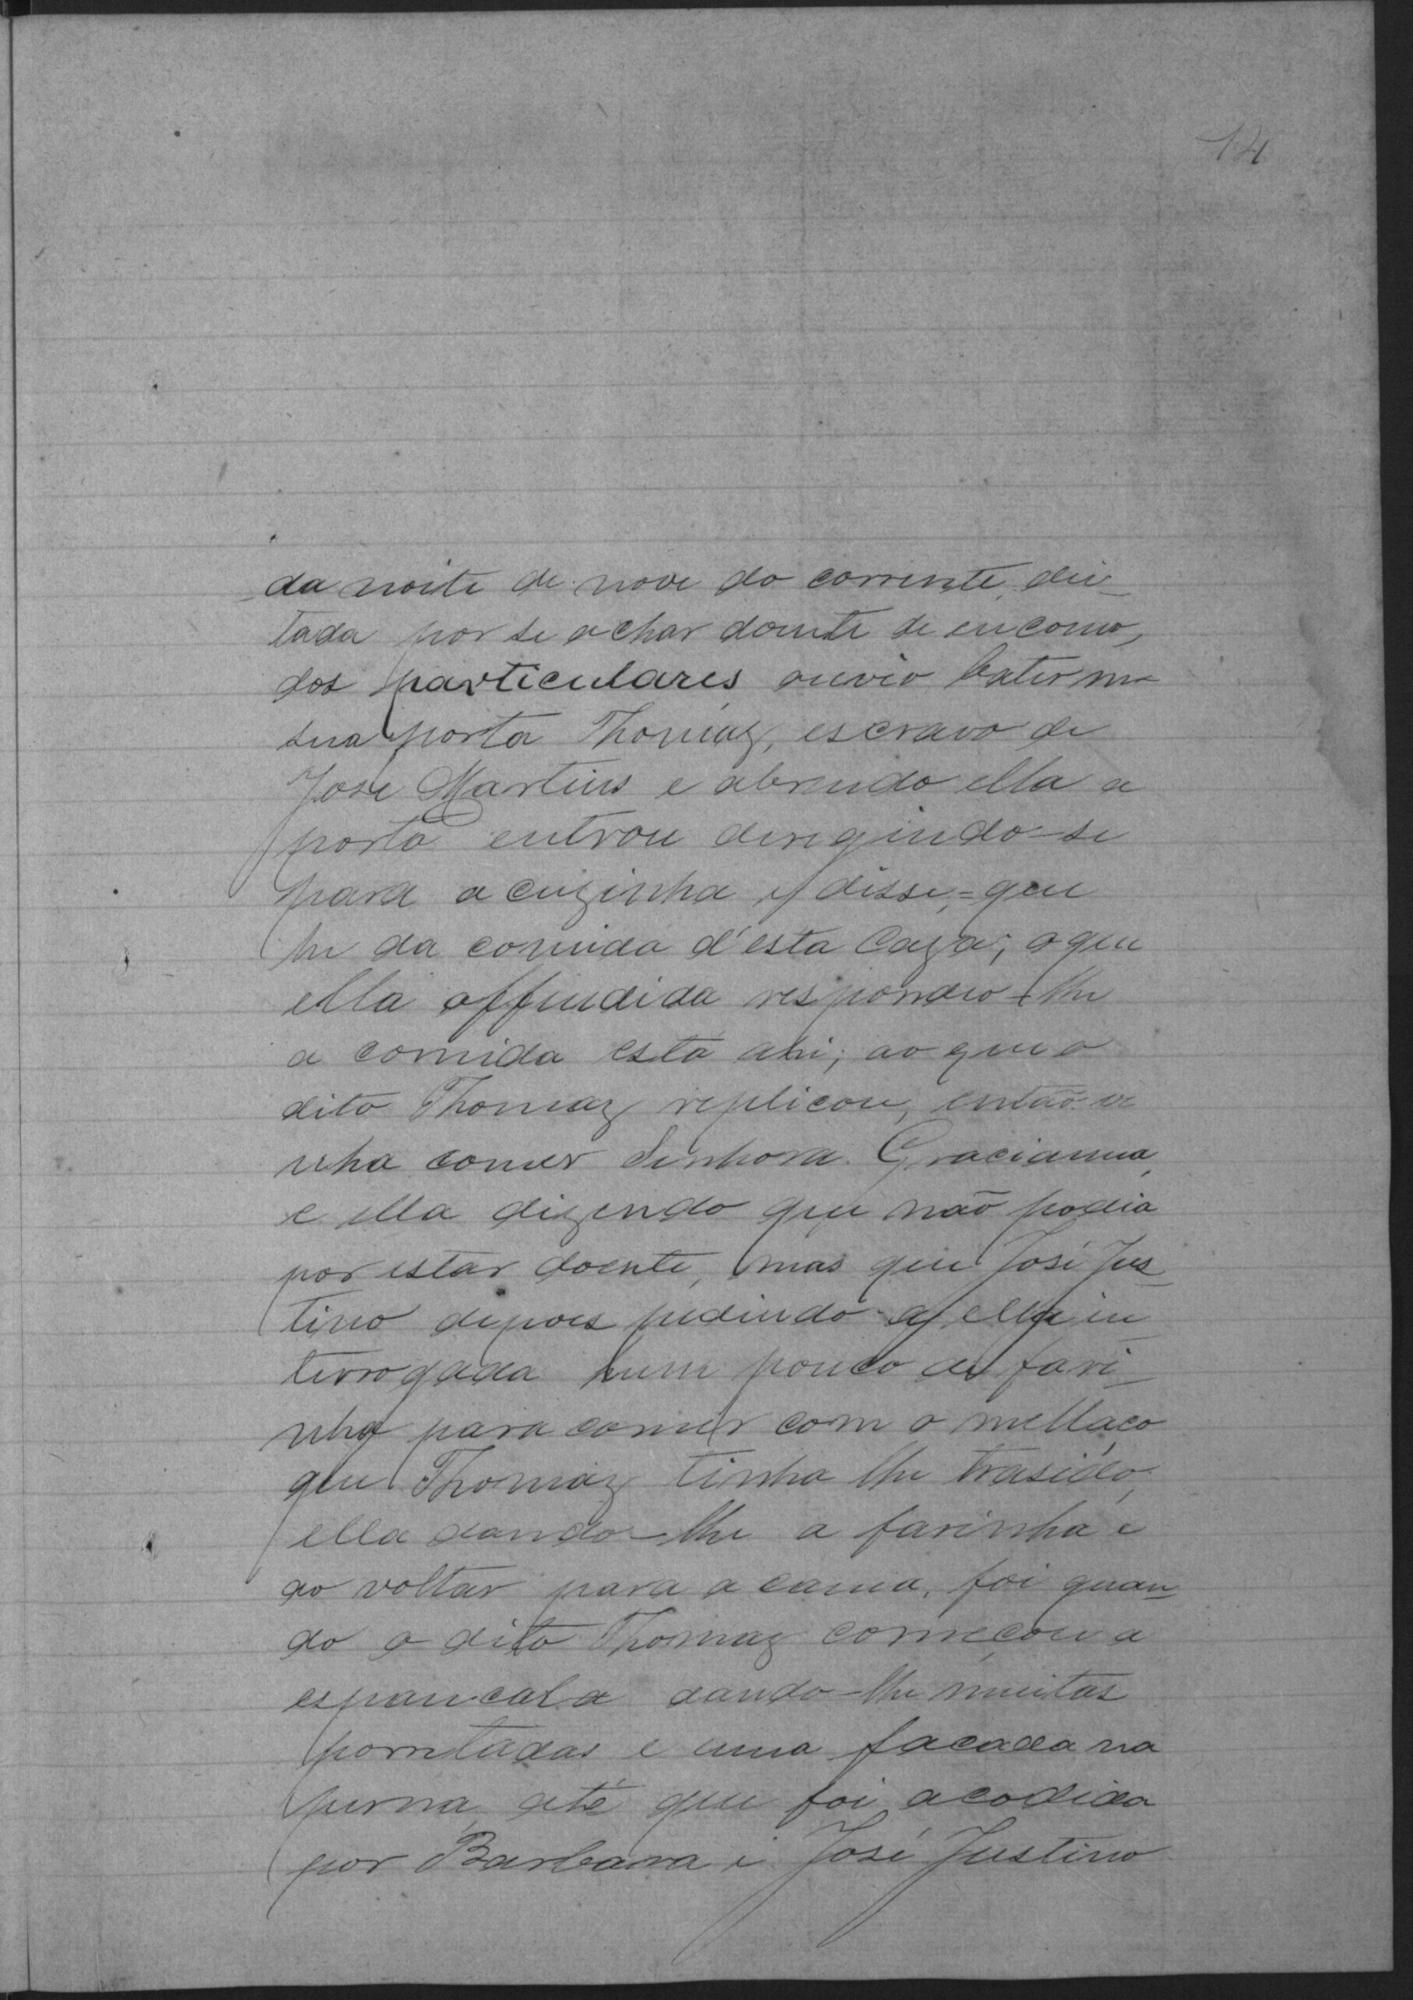 14
da noite de nove do corrente, dei-
tada por se achar doente de encomo,
dos particulares ouvio bater na
sua porta Thomaz, escravo de
José Martins e abrindo ella a
porta entrou derigindo-se
para a cuzinha e disse, = que
he da comida d'esta Caza; o que
ella offendida respondeo-lhe
a comida está ahi; ao que o
dito Thomaz replicou, então ve
nha comer Senhora Gracianna,
e ella dizendo que não podia
por estar doente, mas que José Jus-
tino depois pedindo a ella in
terrogada hum pouco de fari-
nha para comer com o mellaço
que Thomaz tinha lhe trasido,
ella dando-lhe a farinha e
ao voltar para a cama, foi quan-
do o dito Thomaz começou a
espancala dando-lhe muitas
porretadas e uma facada na
perna, até que foi acodida
por Barbara e José Justino